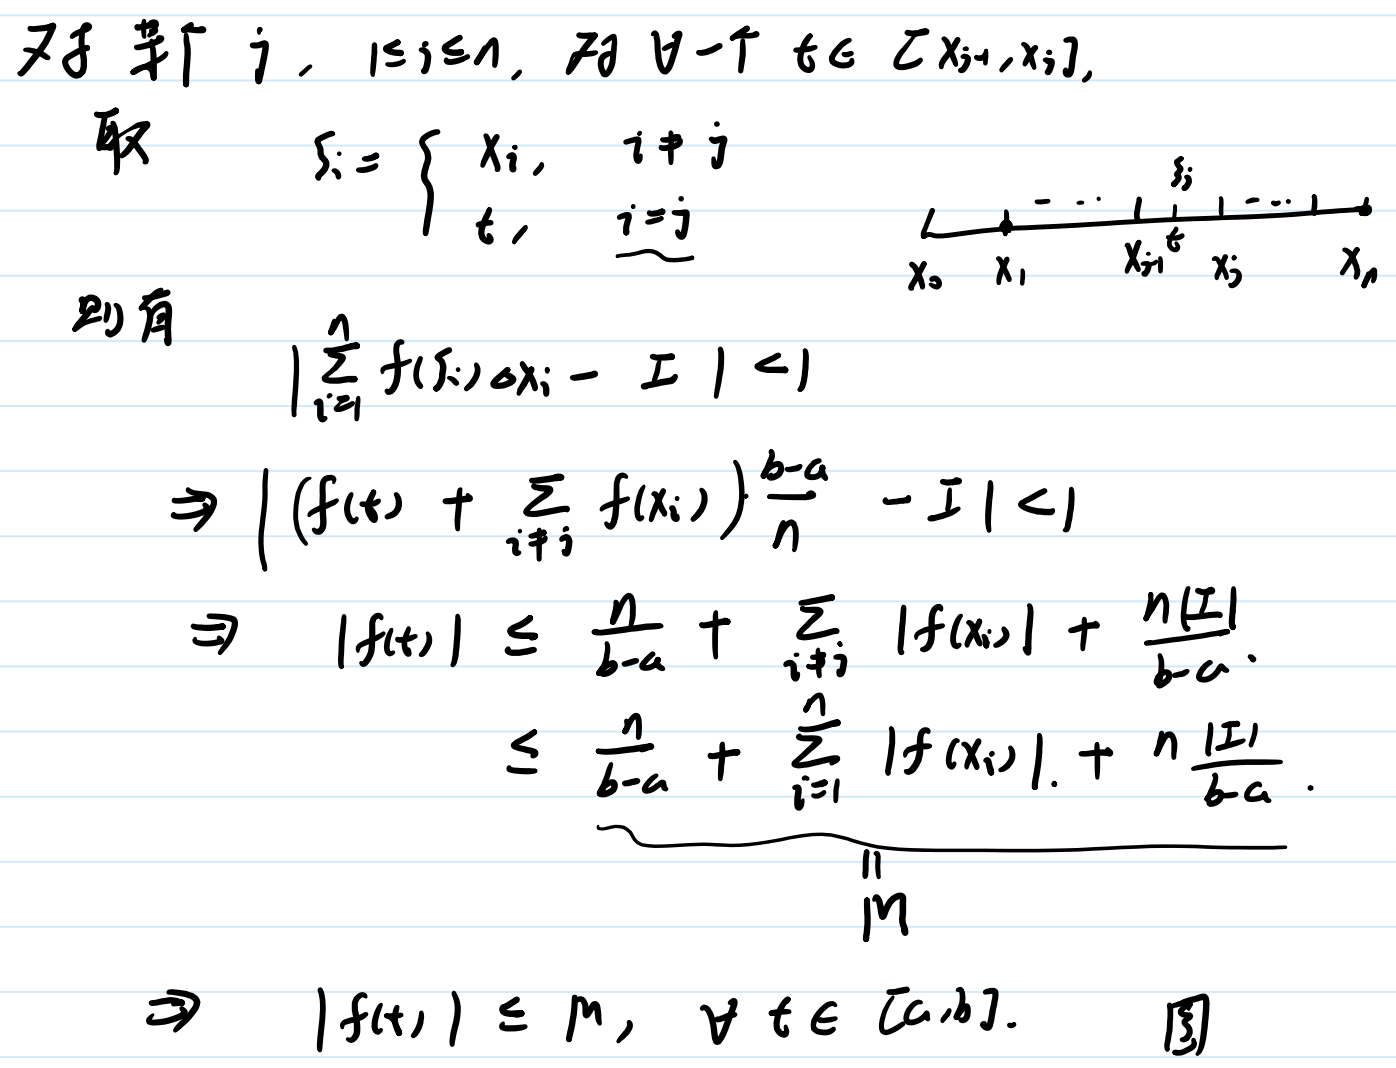 对某个 j, 1≤j≤n, 对∀一个 t∈[x_{j-1}, x_j],
取 ξ_i = { x_i, i≠j
t, i=j
ξ_j
x_0 x_1 --- x_{j-1} t x_j --- x_n
则有
|∑_{i=1}^{n} f(ξ_i)Δx_i - I| < 1
⇒ |(f(t) + ∑_{i≠j} f(x_i))·\frac{b-a}{n} - I| < 1
⇒ |f(t)| ≤ \frac{n}{b-a} + ∑_{i≠j} |f(x_i)| + \frac{n|I|}{b-a}.
≤ \frac{n}{b-a} + ∑_{i=1}^{n} |f(x_i)|. + n\frac{|I|}{b-a}.
=
M
⇒ |f(t)| ≤ M, ∀ t∈[a,b].